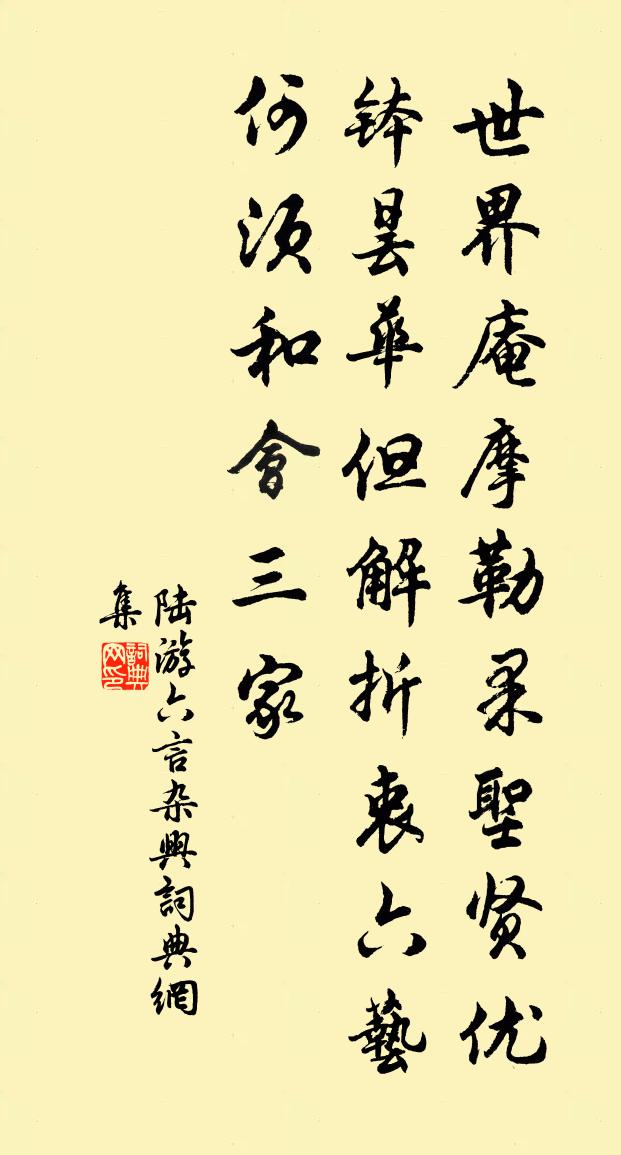 世界庵摩勒果聖贤优
钵曇華但解折衷六藝
何须和會三家
陆游六言杂興詞典網
集
詞典
网印